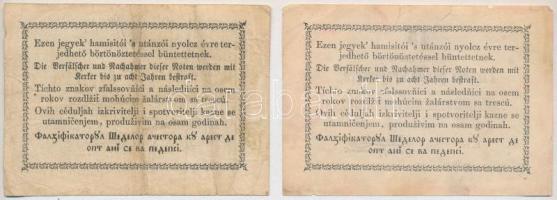 Ezen jegyek' hamisitói 's utánzói nyolcz évre ter-
jedhető börtönöztetéssel büntettetnek.
Die Verfälscher und Nachahmer dieser Noten werden mit
Kerker bis zu acht Jahren bestraft.
Tíchto znakov zfalssovňíci a následňíci na osem
rokov rozdlžiť mohúcim žalárstvom sa trescú.
Ovih céduljah izkrivitelji i spotvoritelji kazne se
utamničenjem, produživim na osam godinah.
Ezen jegyek' hamisitói 's utánzói nyolcz évre ter-
jedhető börtönöztetéssel büntettetnek.
Die Verfälscher und Nachahmer dieser Noten werden mit
Kerker bis zu acht Jahren bestraft.
Tíchto znakov zfalssovňíci a následňíci na osem
rokov rozdlžiť mohúcim žalárstvom sa trescú.
Ovih céduljah izkrivitelji i spotvoritelji kazne se
utamničenjem, produživim na osam godinah.